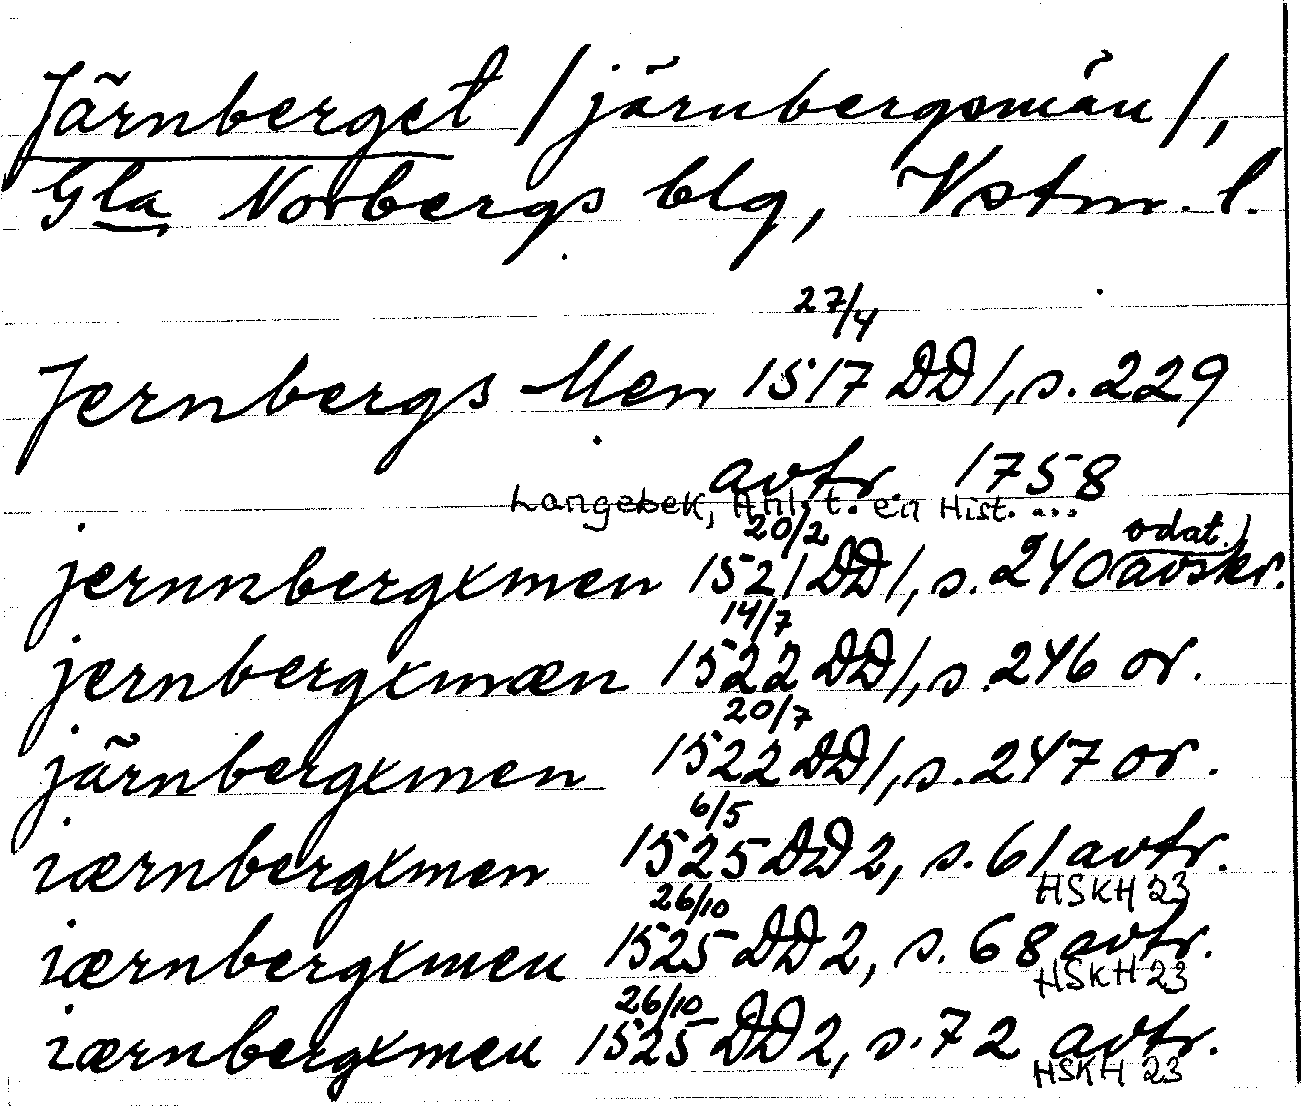 Järnberget /järnbergsmän/,
Gla Norbergs blg, Vstm. l.
27/4
Jernbergs Men 1517 DD1, s. 229
avtr. 1758
Langebek, Anl. t. en Hist. ...
20/2 odat.)
jernnbergxmen 1521 DD1, s. 240 (avskr.
14/7
jernbergxmæn 1522 DD1, s. 246 or.
20/7
järnbergxmen 1522 DD1, s. 247 or.
6/5
iærnbergxmen 1525 DD2, s. 61 avtr.
HSKH 23
26/10
iærnbergxmen 1525 DD2, s. 68 avtr.
HSKH 23
26/10
iærnbergxmen 1525 DD2, s. 72 avtr.
HSKH 23